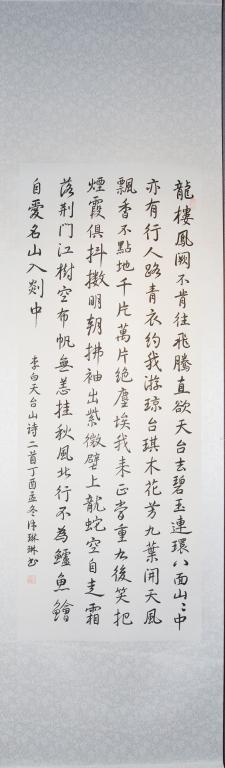 龍樓鳳闕不肯住飛騰直欲天台去碧玉連環八面山山中
亦有行人路青衣約我游琼台琪木花芳九葉開天風
飄香不點地千片萬片絶塵埃我来正當重九後笑把
煙霞俱抖擻明朝拂袖出紫微壁上龍蛇空自走霜
落荆门江樹空布帆無恙挂秋風此行不為鱸魚鱠
自愛名山入剡中
李白天台山诗二首丁酉孟冬 琳琳书